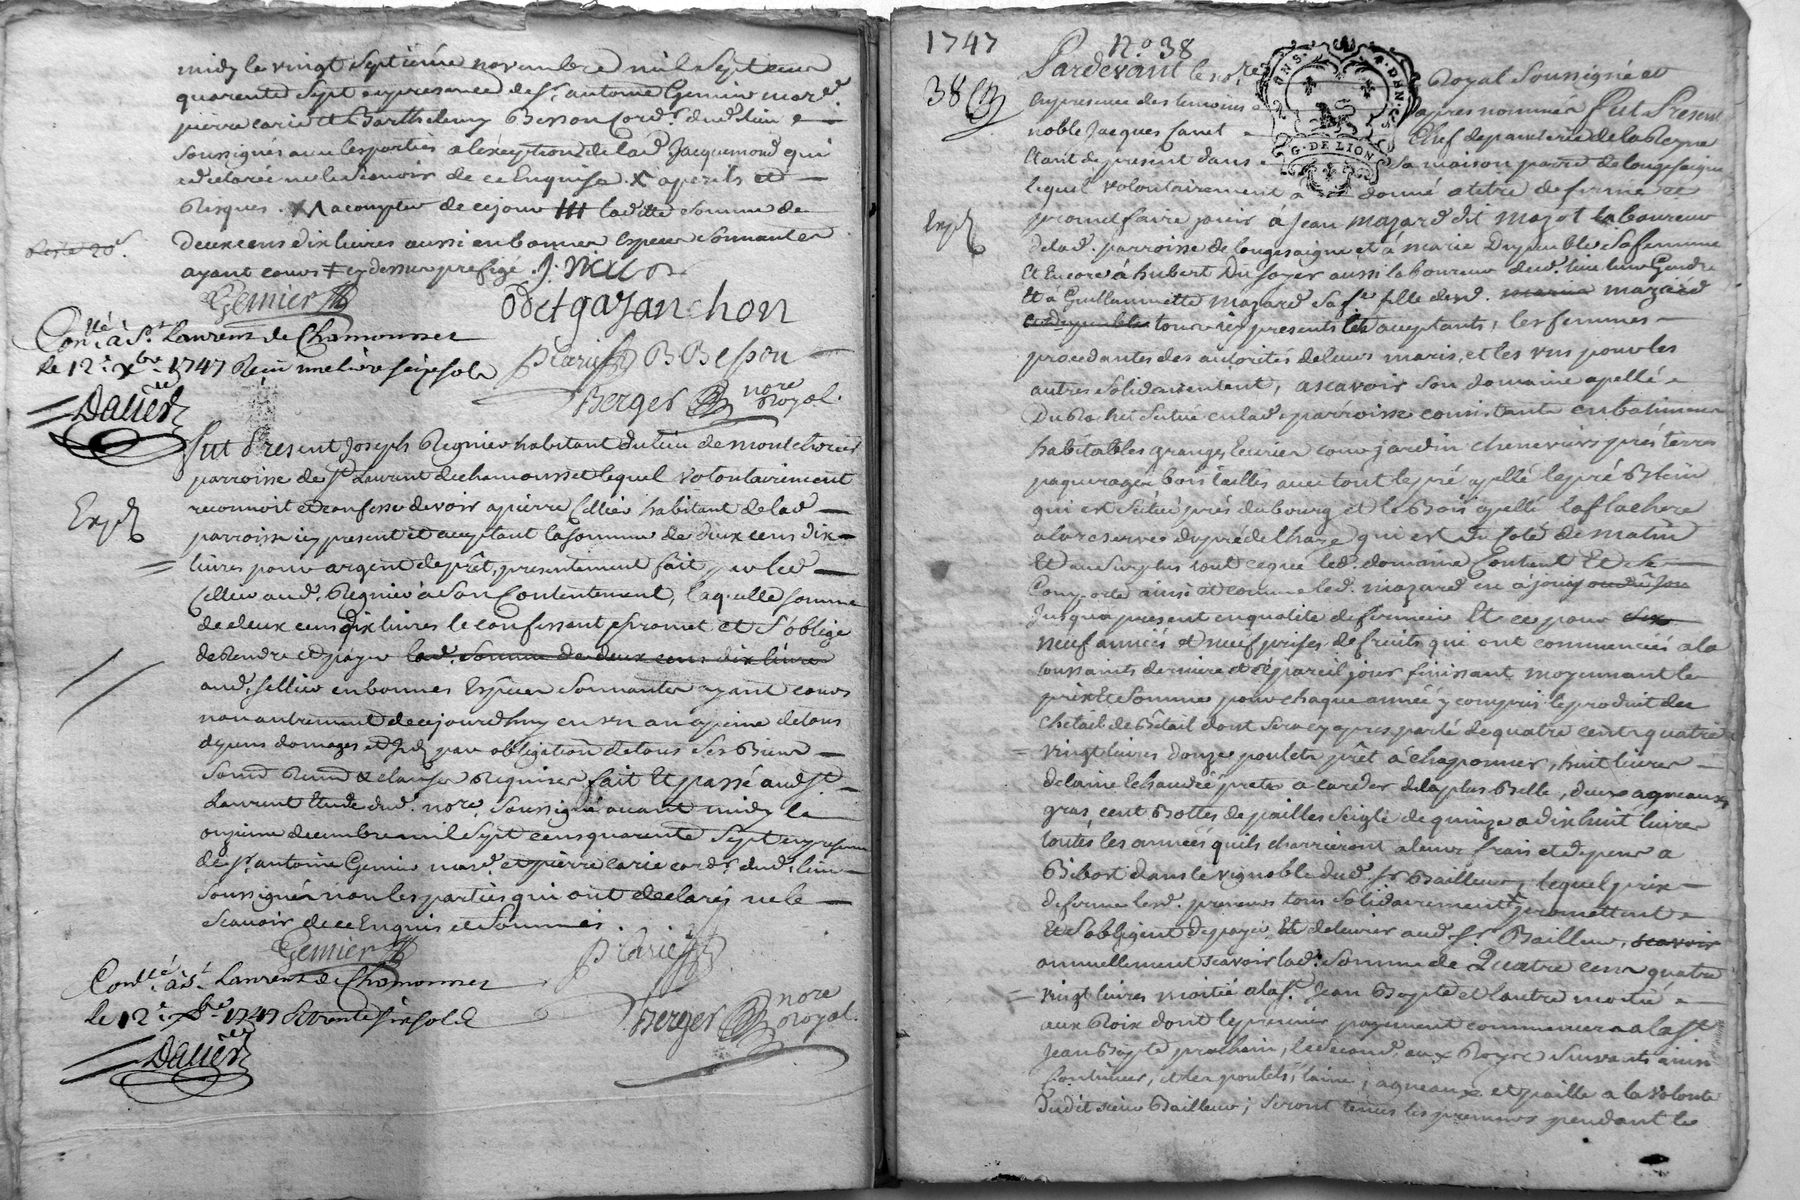 midy le vingt septieme novembre mil sept cens
quarente sept en presence de sr. antoine Gemier mard.
pierre carie et Barthelemy Besson cord. dud. lieu
soussignés avec les parties a l'éxeption de lad. Jacquemond qui
a declaré ne le scavoir de ce Enquise X a perils et
Risques. X a compter de ce jour lad. somme de
deux cens dix livres aussi en bonnes Especes sonnantes
ayant cours + cy dessus prefigé
reste 20s.
Gemier
Odet gajanchon
Conllé à St. Laurens de Chamousset
le 12e. Xbre 1747 Reçu
PCarie BBesson
Berger nore Royal.
Dalier
Fut Present Joseph Regnier habitant du lieu de montchorel
parroisse de St. Laurent de chamousset lequel volontairement
reconnoit et confesse devoir a pierre Cellier habitant de lad.
Exp.
parroisse icy present et acceptant la somme de deux cens dix
livres pour argent de prêt, presentement fait par led.
Cellier aud. Regnier à son contentement, laquelle somme
de deux cens dix livres le confessant promet et s'oblige
de Rendre et payer lad. somme de deux cens dix livres
aud. sellier en bonnes Espêces sonnantes ayant cours
non autrement de ce jourd'huy en un an a peine de tous
depens domages et par obligation de tous ses Biens
Soumd. Renond. & clauses Requises fait et passé aud. St.
Laurent Etude dud. nore. soussigné avant midy le
onzieme decembre mil sept cens quarente sept en presence
de sr. antoine Gemier mard. et pierre carie cord. dud. lieu
soussignés non les parties qui ont declarés ne le
scavoir de ce Enquis et sommés.
Gemier
PCarie
Conllé. à St. Laurens de Chamousset
le 12e. Xbre 1747 R trente six sols
Berger nore Royal.
Dalier
1747 N.o 38
38
Pardevant le nore Royal soussigné et
en presence des temoins apres nommés fut Present
noble Jacques Canet Chef de paneterie de la Reyne
Etant de present dans sa maison parre. de longesaigne
G. DE LION
lequel volontairement a donné a titre de ferme et
Exp.
promet faire jouir à Jean mazard dit mazot laboureur
de lad. parroisse de longesaigne et a marie Dupeuble sa femme
Et Encore à hubert Dufayer aussi laboureur dud. lieu leur Gendre
Et à Guillaumette mazard sa fe. fille desd. mazard
tous icy presents et acceptants, les femmes
procedantes des autorités de leurs maris, et les uns pour les
autres solidairement, a scavoir son domaine apellé
Du situé en lad. parroisse consistant en batimens
habitables granges Ecuries cour jardin cheneviers prés terres
paquerages bois taillés avec tout le pré apellé le pré Blein
qui est situé prés du bourg et le Bois apellé la flachere
a la reserve du pré qui est du coté de matin
Et au surplus tout ce que led. domaine Contient Et se
Comporte ainsi et comme led. mazard en à jouy
Jusqu'a present en qualité de fermier Et ce pour six
neuf années et neuf prises de fruits qui ont commencées a la
toussaints derniere et à pareil jour finissant moyennant le
prix et somme pour chaque année y compris le produit du
Cheptail de Bétail dont sera cy apres parlé de quatre cent quatre
vingt livres douze poulets prêt à chaponner, huit livres
de laine lechaudée prete a carder de la plus Belle, deux agneaux
gras, cent Bottes de pailles seigle de quinze a dix huit livres
toutes les années qu'ils charrieront a leurs frais et depens a
Bibost dans le vignoble dud. sr. Bailleur, lequel prix
de ferme lesd. preneurs tous solidairement promettent
Et s'obligent de payer Et delivrer aud. sr. Bailleur, scavoir
annuellement scavoir lad. somme de Quatre cens quatre
vingt livres moitié a la St. Jean Bapte et l'autre moitié
aux Roix dont le premier payement commencera a la St.
Jean Bapte prochain, le second aux Roys suivants ainsi
continuer, et les poulets, laine, agneaux et paille a la volonté
dudit sieur Bailleur; seront tenus les preneurs pendant le